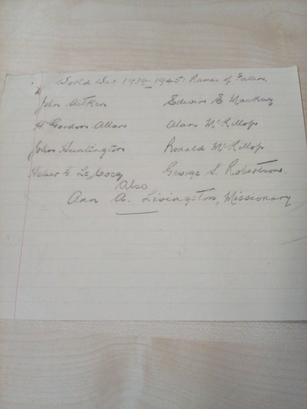 World War 1939-1945: Names of Fallen
John Aitken Edwin E Mackay
H Gordon Allan Alan McKillop
John Huntington Ronald McKillop
George S. Robertson
Also
Ann A. Livingston, Missionary